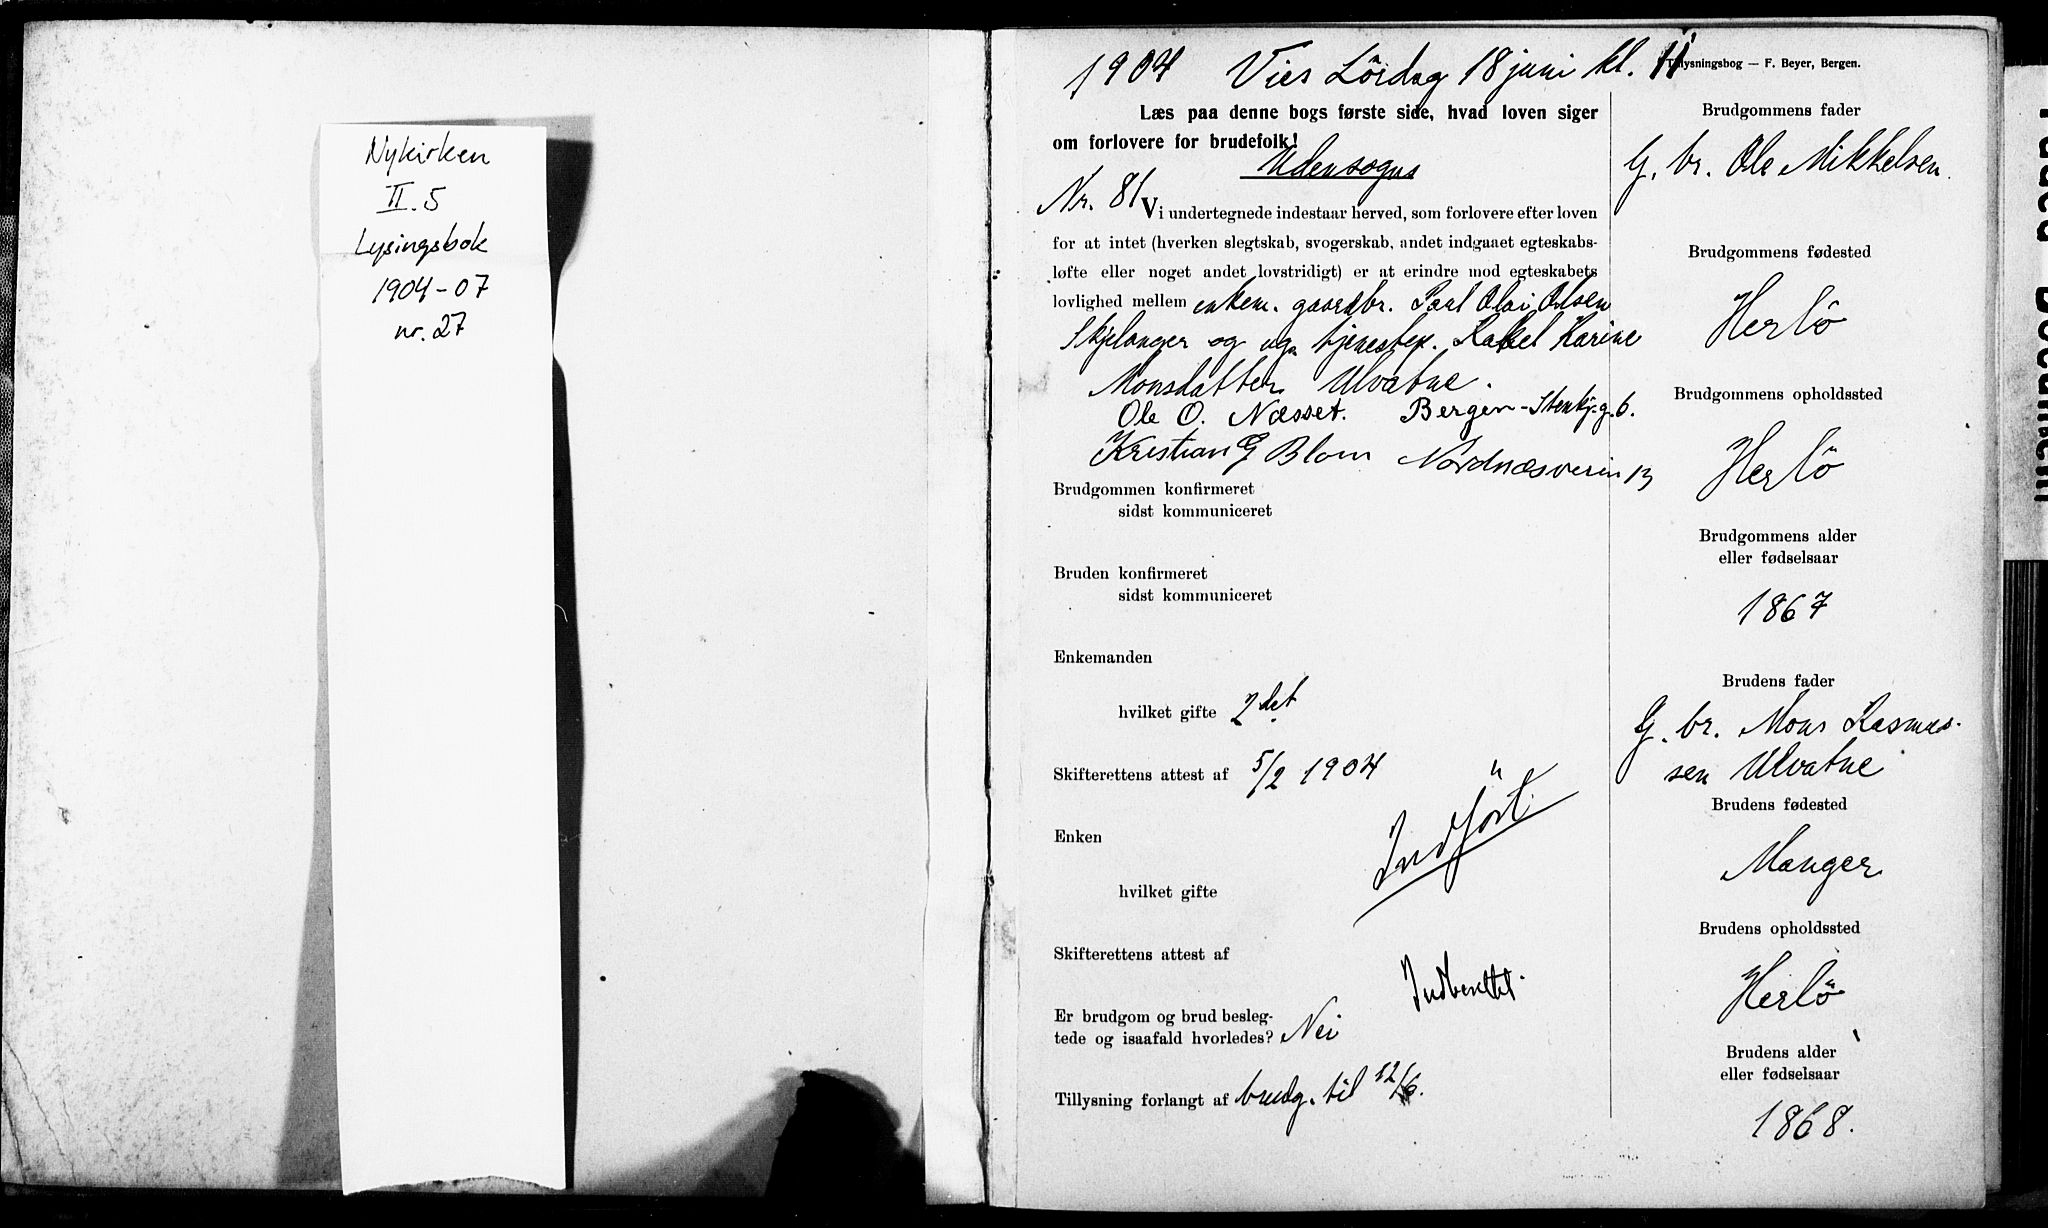 Nykirken
II. 5
Lysingsbok
1904-07
nr. 27
1904 Vies Lördag 18 juni kl. 11
Tillysningsbog — F. Beyer, Bergen.
Læs paa denne bogs første side, hvad loven siger
om forlovere for brudefolk!
Udensogns
Nr. 81 Vi undertegnede indestaar herved, som forlovere efter loven
for at intet (hverken slegtskab, svogerskab, andet indgaaet egteskabs-
løfte eller noget andet lovstridigt) er at erindre mod egteskabets
lovlighed mellem enkem. gaardbr. Paul Olai Olsen
Skjelanger og ug. tjenestep. Rakel Karine
Monsdatter Ulvatne.
Ole O. Næsset. Bergen - Stenkj.g. 6.
Kristian G Blom Nordnæsveien 13
Brudgommen konfirmeret
sidst kommuniceret
Bruden konfirmeret
sidst kommuniceret
Enkemanden
hvilket gifte 2det
Skifterettens attest af 5/2 1904
Indført
Enken
hvilket gifte
Skifterettens attest af
Indberettet.
Er brudgom og brud besleg-
tede og isaafald hvorledes? Nei
Tillysning forlangt af brudg. til 12/6.
Brudgommens fader
G. br. Ole Mikkelsen.
Brudgommens fødested
Herlö
Brudgommens opholdssted
Herlö
Brudgommens alder
eller fødselsaar
1867
Brudens fader
G. br. Mons Rasmus-
sen Ulvatne
Brudens fødested
Manger
Brudens opholdssted
Herlö
Brudens alder
eller fødselsaar
1868.